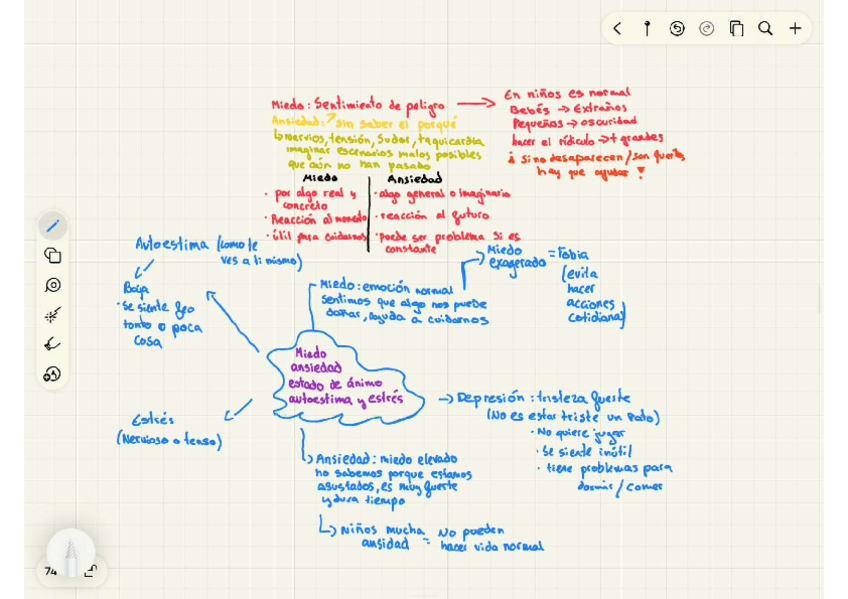 Miedo: Sentimiento de peligro
Ansiedad: sin saber el porqué
nervios, tensión, sudor, taquicardia
imaginar escenarios malos posibles
que aún no han pasado
En niños es normal
Bebés → Extraños
Pequeños → oscuridad
hacer el ridículo → + grandes
¡ Si no desaparecen / son fuertes
hay que ayudar !
Miedo
· por algo real y
concreto
· Reacción al momento
· útil para cuidarnos
Ansiedad
· algo general o imaginario
· reacción al futuro
· puede ser problema si es
constante
Autoestima (como te
ves a ti mismo)
Baja
· se siente feo
tonto o poca
cosa
Miedo: emoción normal
sentimos que algo nos puede
dañar, ayuda a cuidarnos
Miedo
exagerado = Fobia
(evita
hacer
acciones
cotidiana)
Miedo
ansiedad
estado de ánimo
autoestima y estrés
Estrés
(Nervioso o tenso)
→ Depresión: tristeza fuerte
(No es estar triste un rato)
· No quiere jugar
· Se siente inútil
· tiene problemas para
dormir / comer
Ansiedad: miedo elevado
no sabemos porque estamos
asustados, es muy fuerte
y dura tiempo
Niños mucha
ansidad = No pueden
hacer vida normal
74